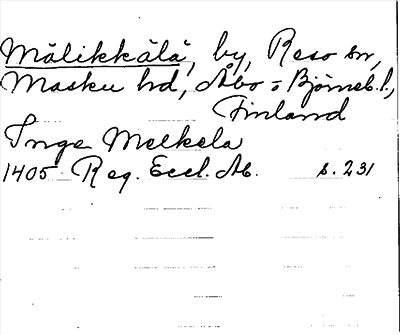 Mälikkälä, by, Reso sn,
Masku hd, Åbo o Björneb. l.,
Finland
Inge Melkela
1405 Reg. Eccl. Ab. s. 231